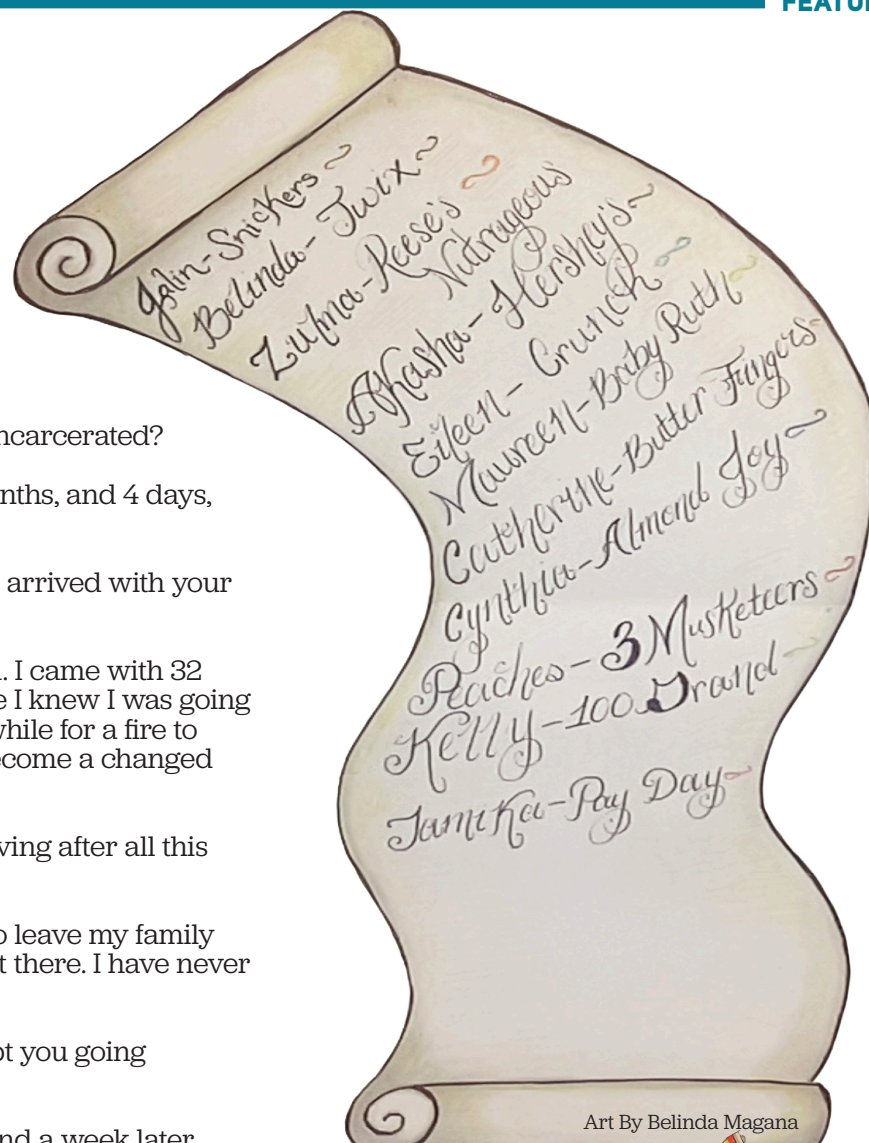 FEATU
ncarcerated?
nths, and 4 days,
arrived with your
. I came with 32
e I knew I was going
while for a fire to
ecome a changed
ving after all this
o leave my family
t there. I have never
pt you going
nd a week later
Jalin-Snickers ~
Belinda- Twix ~
Zulma-Reese's ~
Nutrageous
Akasha- Hershey's ~
Eileen- Crunch
Maureen-Baby Ruth
Catherine-Butter Fingers
Cynthia-Almond Joy ~
Peaches-3 Musketeers ~
Kelly-100 Grand
Jamika-Pay Day ~
Art By Belinda Magana